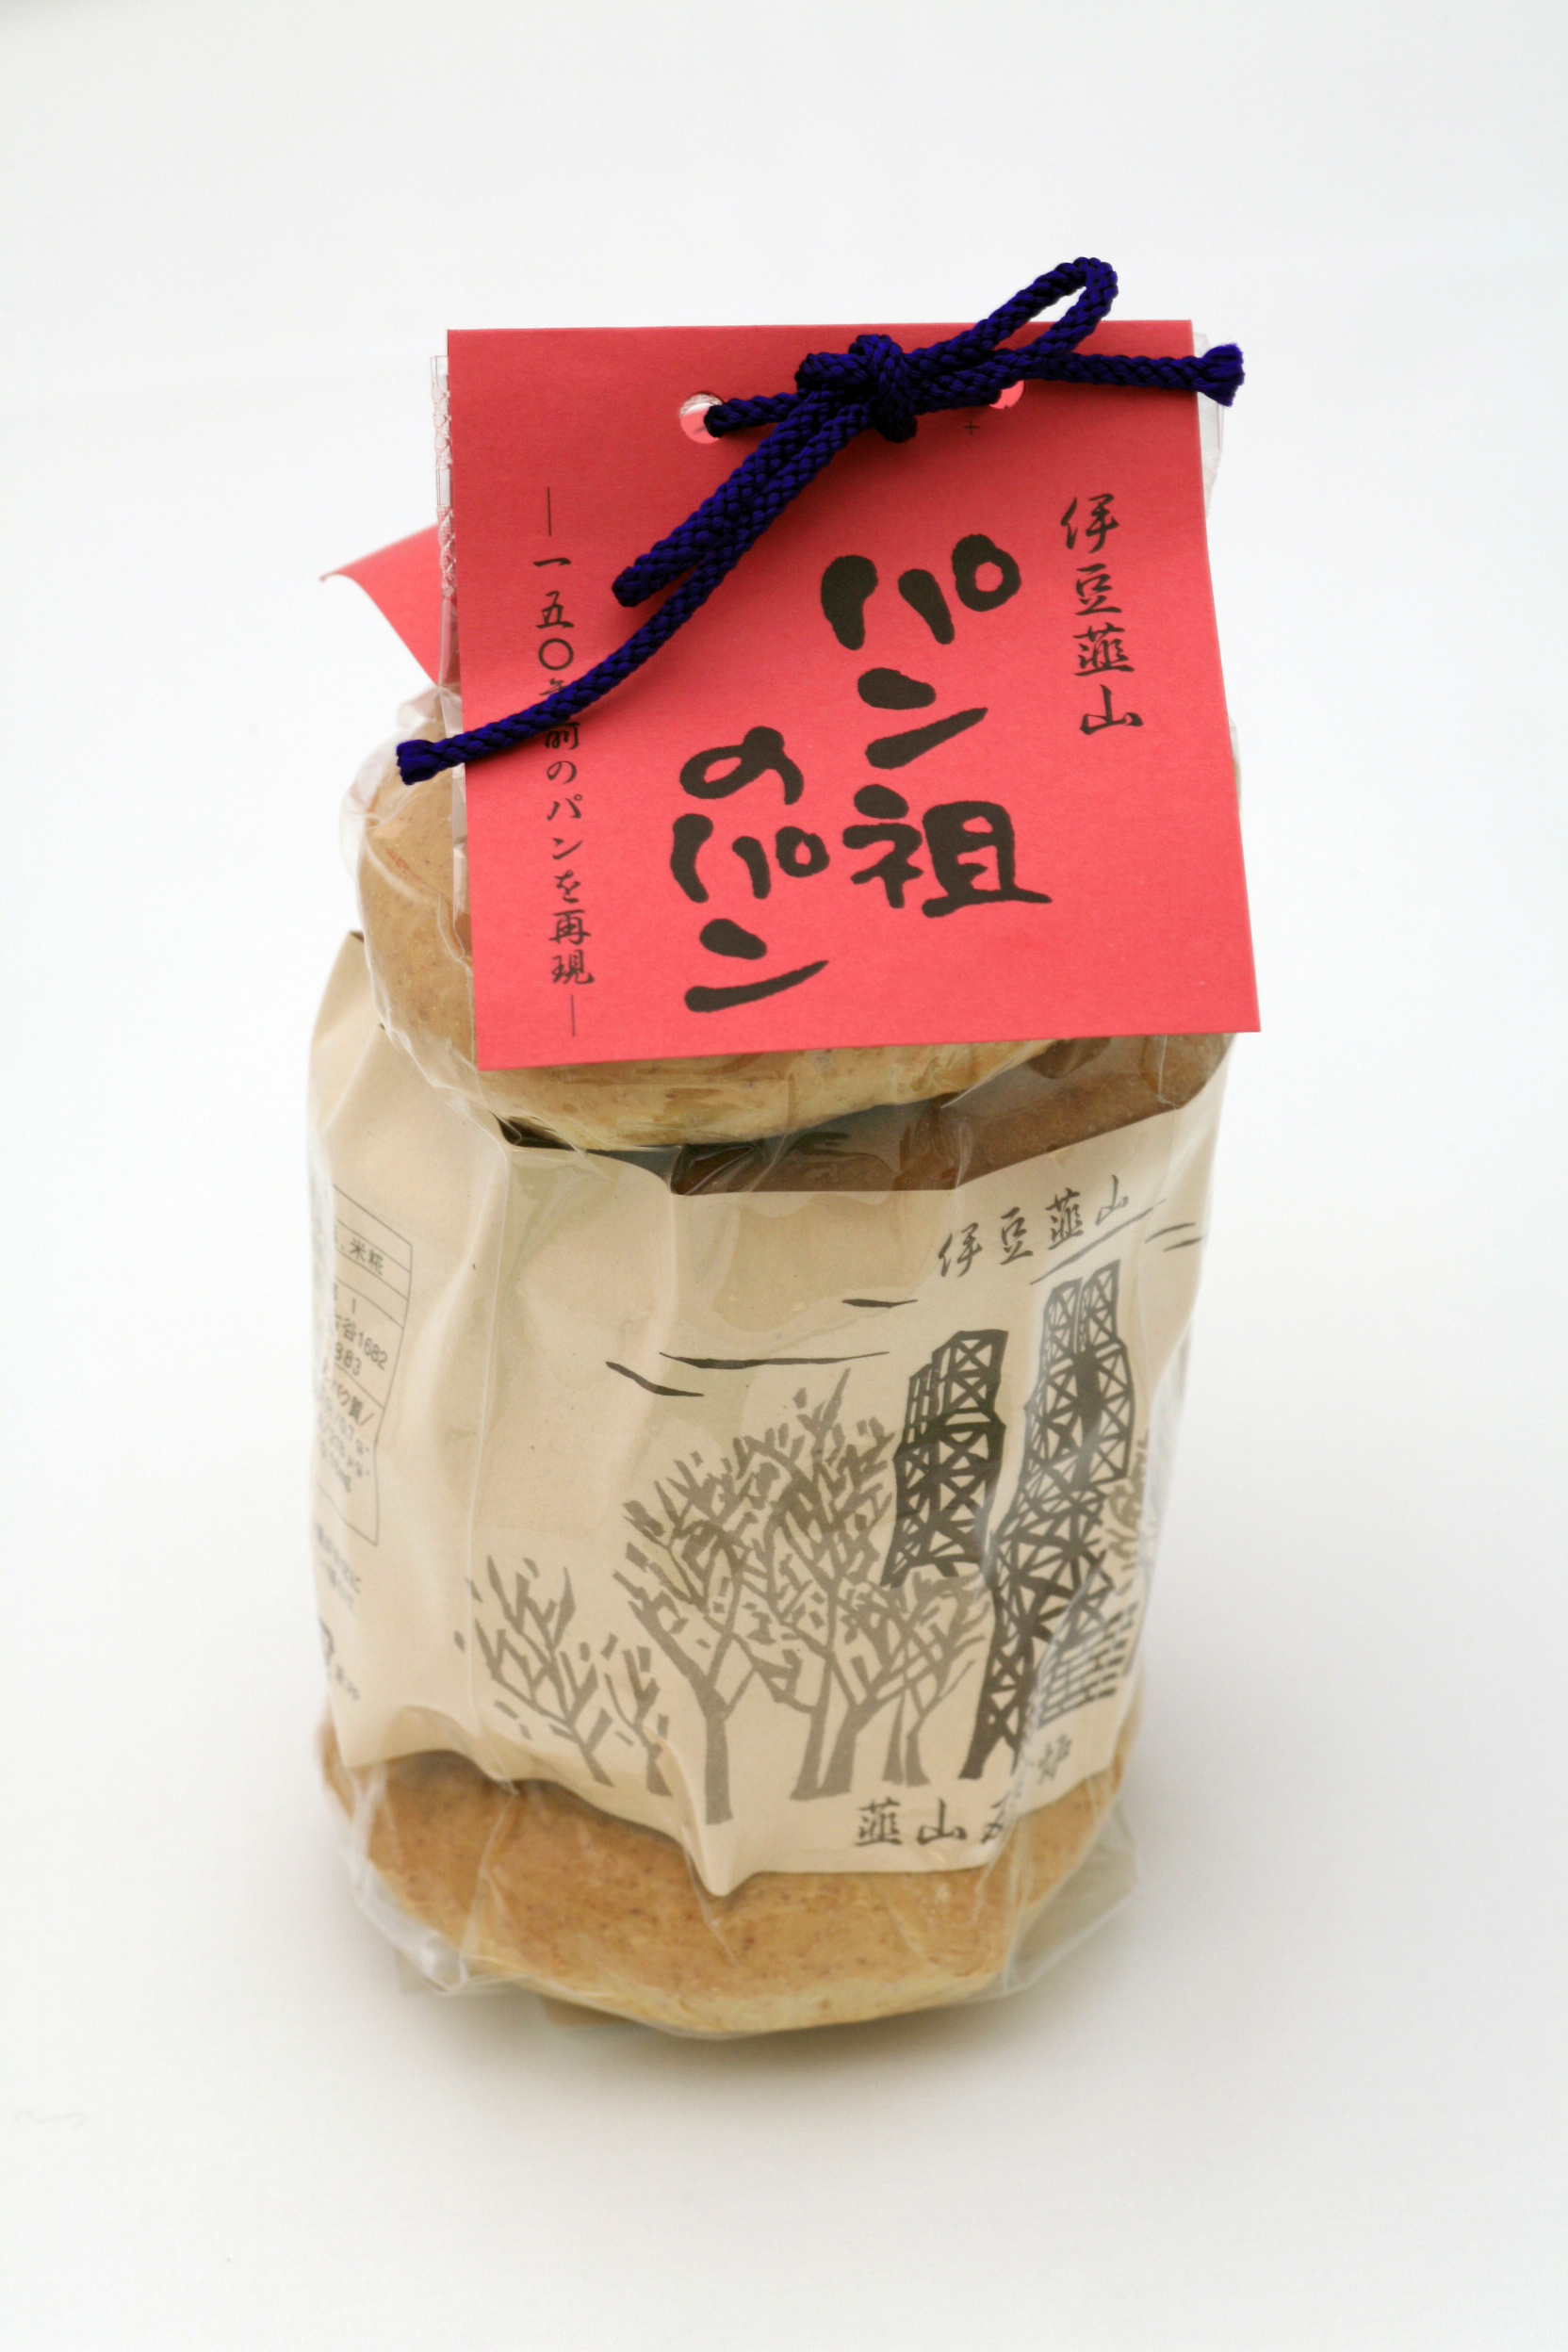 伊豆韮山
パン祖
のパン
一五〇年前のパンを再現
伊豆韮山
韮山
炉
米糀
谷1682
383